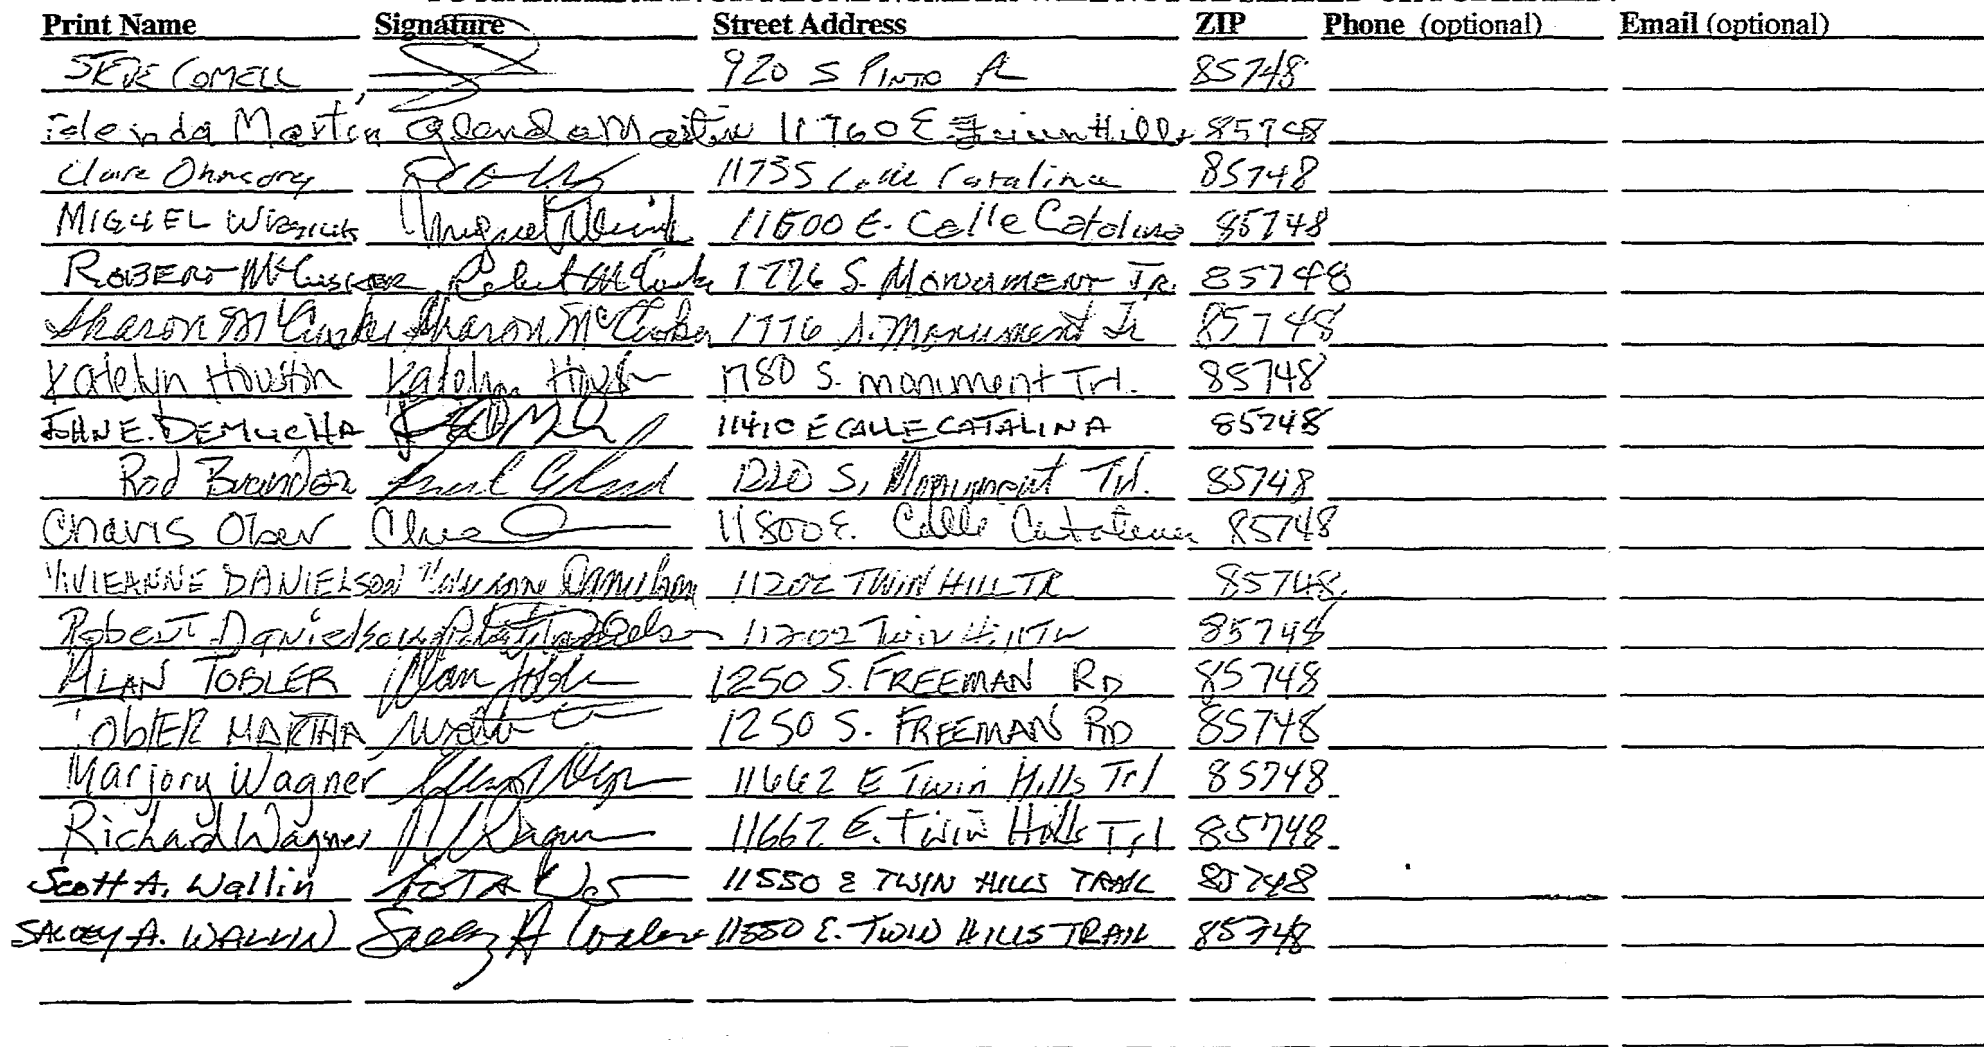 Print Name Signature Street Address ZIP Phone (optional) Email (optional)
920 S Pinto Pl 85748
Glenda Martin Glenda Martin 11760 E. Hills 85748
Claire 11735 Calle Catalina 85748
MIGUEL Miguel 11600 E. Calle Catalina 85748
ROBERT McCUSKER Robert McCusker 1776 S. MONUMENT TR. 85748
Sharon McCusker Sharon McCusker 1776 S. Monument Tr 85748
Katelyn Houston Katelyn Houston 1780 S. monument Trl. 85748
JOHN E. DEMUCHA 11410 E CALLE CATALINA 85748
Rod 1220 S. Monument Trl. 85748
Chavis 11800 E. Calle Catalina 85748
VIVIEANNE DANIELSON Danielson 11202 TWIN HILL TR 85748
Robert Danielson Robert Danielson 11202 Twin Hill Tr 85748
ALAN TOBLER Alan Tobler 1250 S. FREEMAN RD 85748
TOBLER MARTHA 1250 S. FREEMAN RD 85748
Marjory Wagner 11662 E Twin Hills Trl 85748
Richard Wagner R Wagner 11662 E. Twin Hills Trl 85748
Scott A. Wallin 11550 E TWIN HILLS TRAIL 85748
A. WALLIN A 11550 E. TWIN HILLS TRAIL 85748